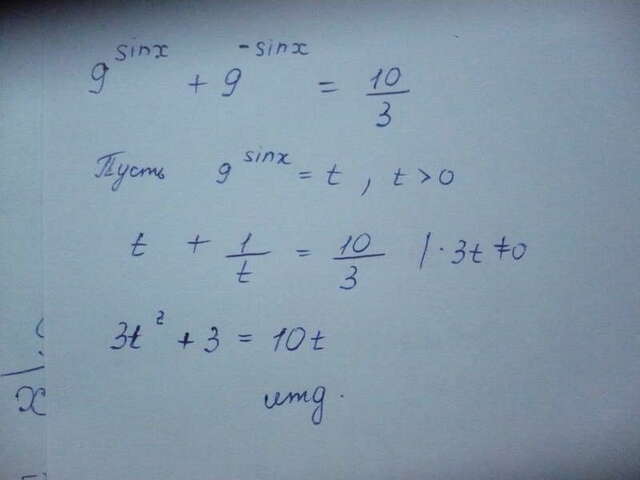 9^sinx + 9^-sinx = 10/3
Пусть 9^sinx = t , t > 0
t + 1/t = 10/3 | · 3t ≠ 0
3t² + 3 = 10t
итд.
x